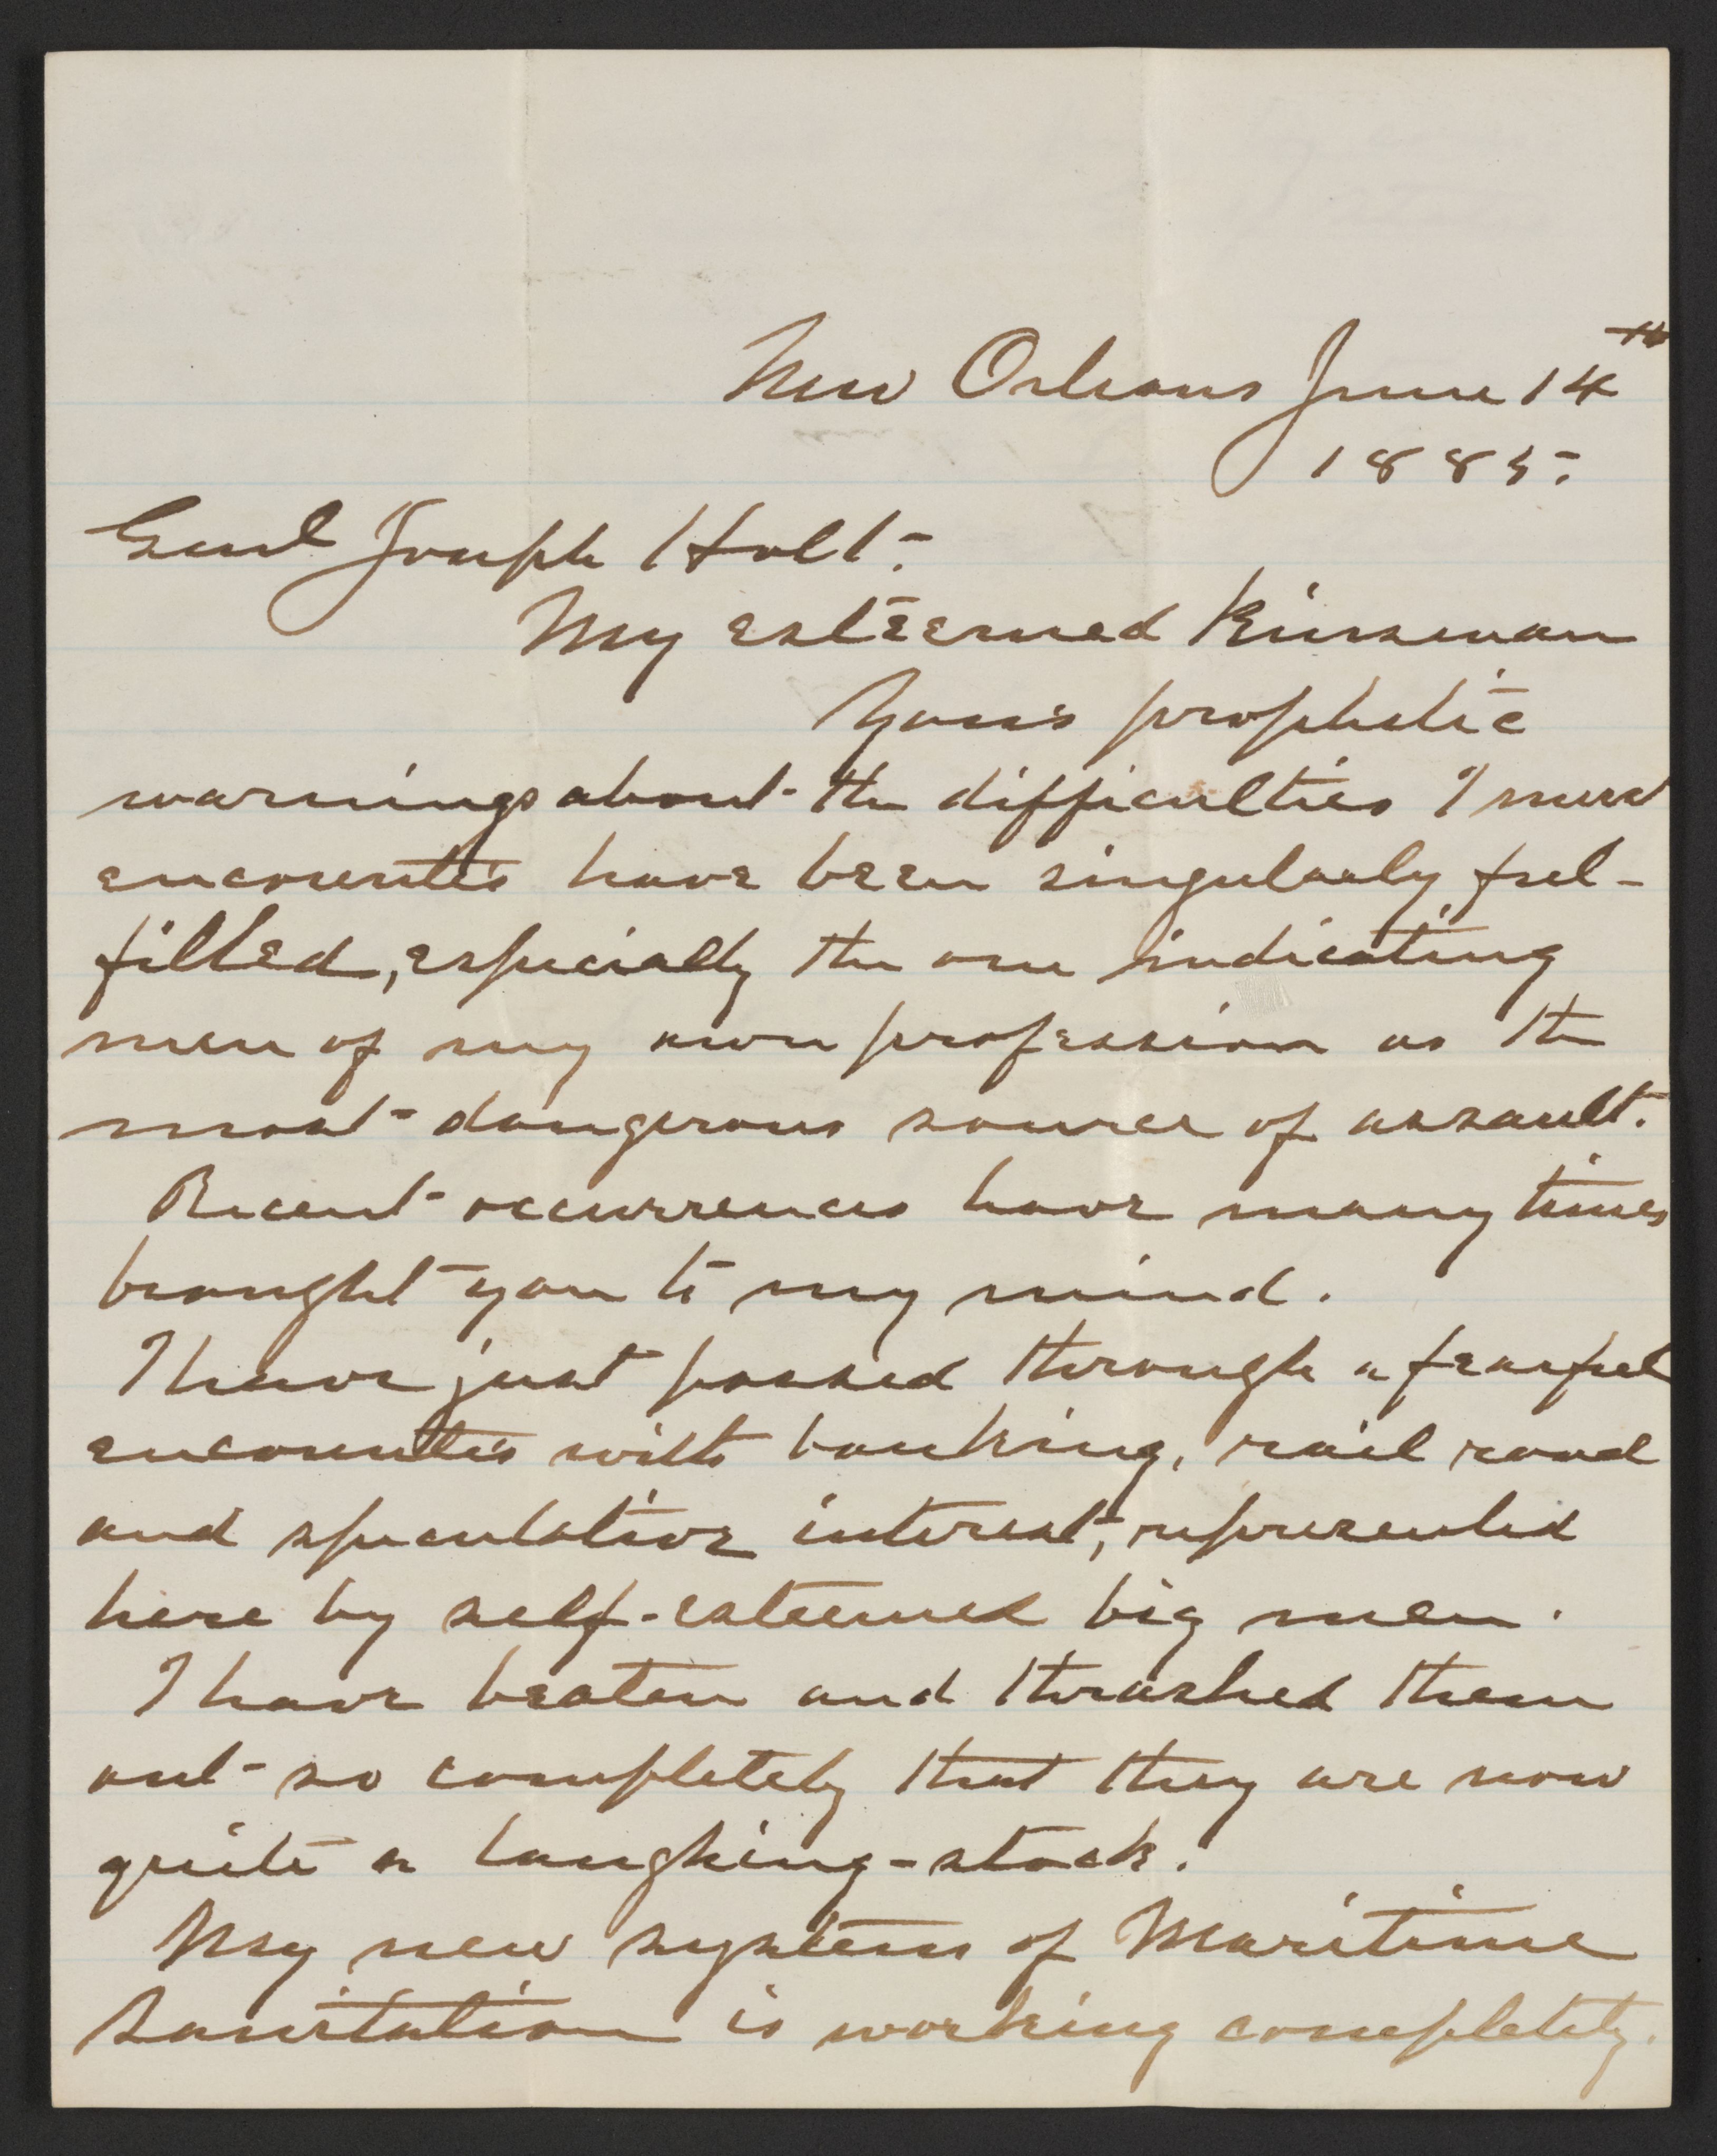 New Orleans June 14th
1885.
Genl Joseph Holt.
My esteemed Kinsman
Your prophetic
warnings about the difficulties I must
encounter have been singularly ful-
filled, especially the one indicating
men of my own profession as the
most dangerous source of assault.
Recent occurrences have many times
brought you to my mind.
I have just passed through a fearful
encounter with banking, rail road
and speculative interest, represented
here by self-esteemed big men.
I have beaten and thrashed them
out so completely that they are now
quite a laughing-stock.
My new system of Maritime
Sanitation is working completely.